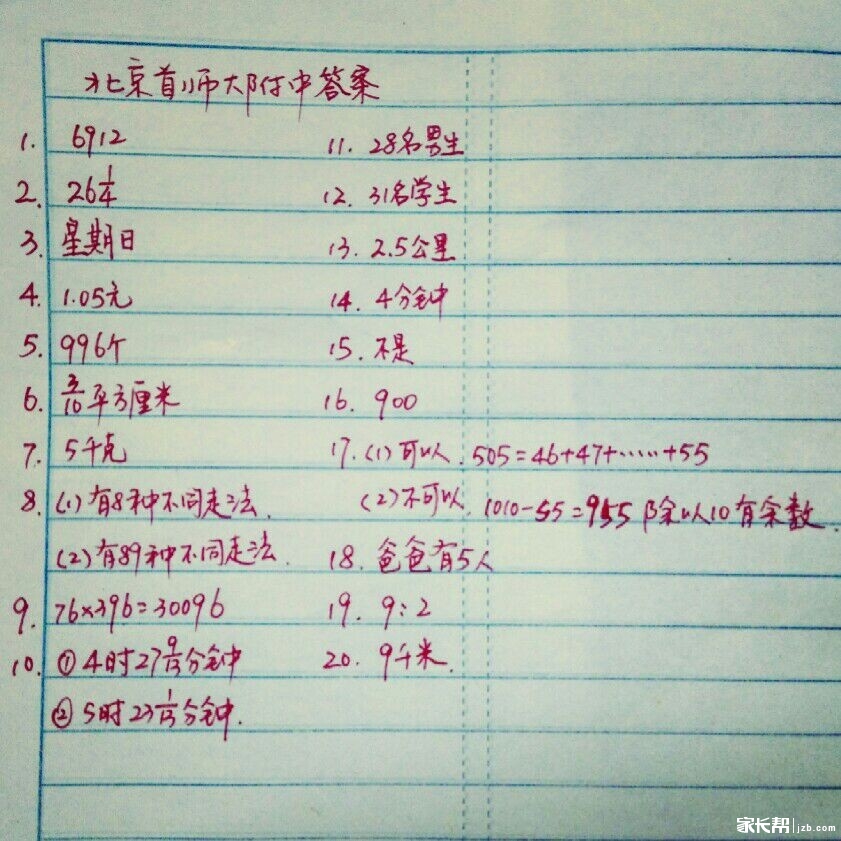 北京首师大附中答案
1. 6912
2. 26 1/4
3. 星期日
4. 1.05元
5. 996个
6. 3/10 平方厘米
7. 5千克
8. (1) 有8种不同走法.
(2) 有89种不同走法.
9. 76×396=30096
10. ① 4时27 9/13分钟
② 5时23 1/13分钟.
11. 28名男生
12. 31名学生
13. 2.5公里
14. 4分钟
15. 不是
16. 900
17. (1) 可以. 505=46+47+……+55
(2) 不可以. 1010-55=955 除以10有余数.
18. 爸爸有5人
19. 9:2
20. 9千米.
家长帮 jzb.com